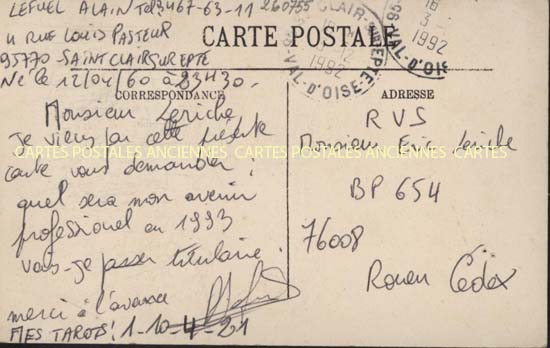 LEFUEL ALAIN Tel 3467-63-11 260755
4 RUE LOUIS PASTEUR
95770 - SAINT CLAIR SUR EPTE
Né le 12/04/60 à 23H30.
CARTE POSTALE
CLAIR-SUR-EPTE
1992
95 VAL-D'OISE
1992
95 VAL-D'OISE
CORRESPONDANCE
Monsieur Leriche
je viens par cette présente
carte vous demander,
quel sera mon avenir
professionel en 1993
Vais-je passer titulaire.
merci à l'avance
MES TAROTS! 1-10-4-21
ADRESSE
RVS
Monsieur Eric Leriche
BP 654
76008
Rouen Cédex
CARTES POSTALES ANCIENNES CARTES POSTALES ANCIENNES CARTES